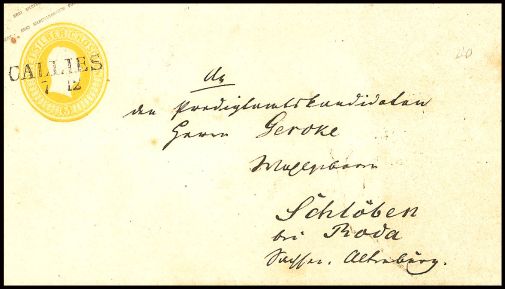 CALLIES
7 12
An
den Predigtamtskandidaten
Herrn Gercke
Schlöben
bei Roda
Sachsen Altenburg.